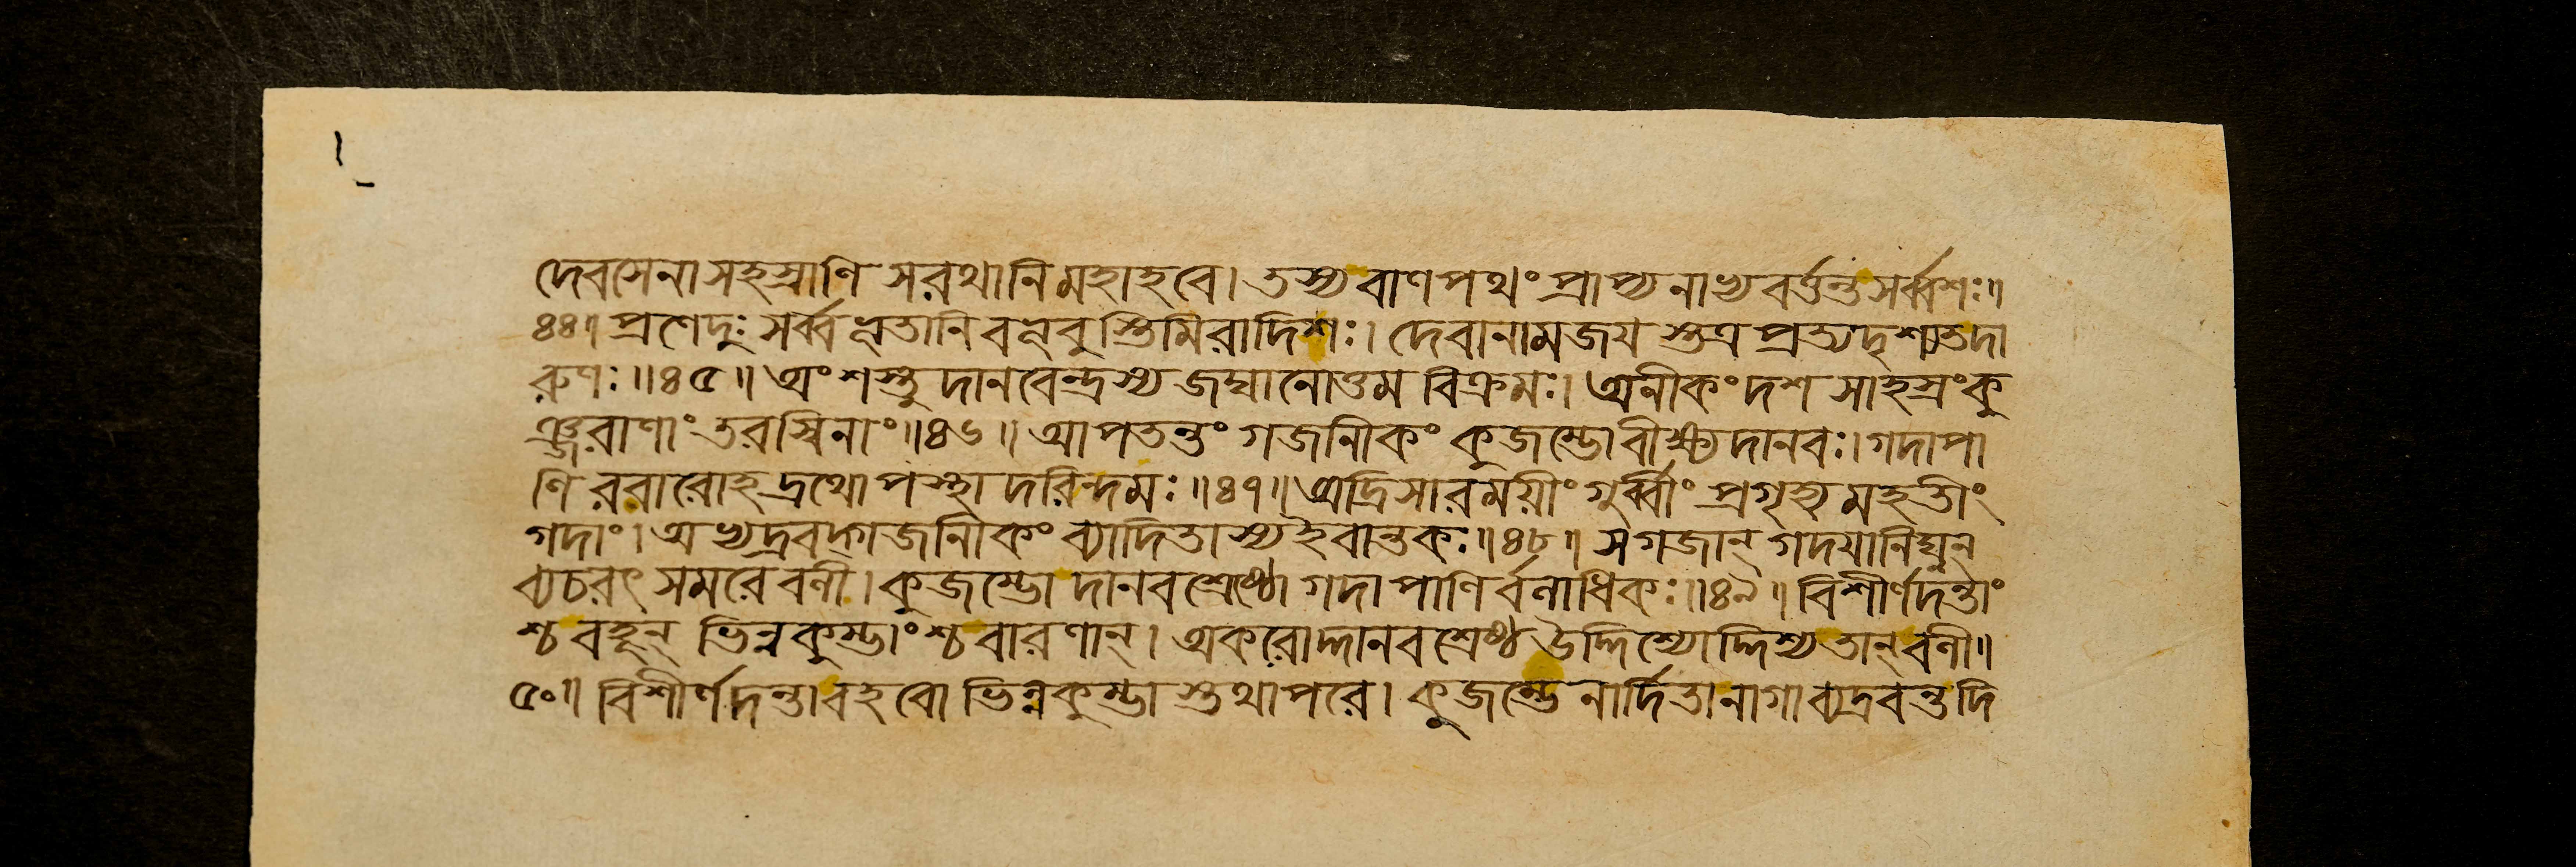 দেবসেনাসহস্রাণি সরথানিমহাহবে। তস্যবাণপথংপ্রাপ্যনাভ্যবর্ত্তন্তসর্ব্বশঃ॥
৪৪॥ প্রণেদুঃ সর্ব্বভূতানিবভূবুস্তিমিরাদিশঃ। দেবানামজয়স্তত্রপ্রত্যদৃশ্যতদা
রুণঃ॥৪৫॥ অংশস্তুদানবেন্দ্রস্যজঘানোত্তমবিক্রমঃ। অনীকংদশসাহস্রংকু
ঞ্জরাণাংতরস্বিনাং॥৪৬॥ আপতন্তংগজানীকংকুজম্ভোবীক্ষ্যদানবঃ।গদাপা
ণিররারোহদ্রথোপস্থাদরিন্দমঃ॥৪৭॥ অদ্রিসারময়ীংগুর্ব্বীংপ্রগৃহ্যমহতীং
গদাং।অভ্যদ্রবদ্গজানীকংব্যাদিতাস্যইবান্তকঃ॥৪৮॥ সগজান্গদয়ানিঘ্নন্
ব্যচরৎসমরেবলী। কুজম্ভোদানবশ্রেষ্ঠোগদাপাণির্বলাধিকঃ॥৪৯॥ বিশীর্ণদন্তাং
শ্চবহূন্ভিন্নকুম্ভাংশ্চবারণান্। অকরোদ্দানবশ্রেষ্ঠউদ্দিশ্যোদ্দিশ্যতান্বলী॥
৫০॥ বিশীর্ণদন্তাবহবোভিন্নকুম্ভাস্তথাপরে। কুজম্ভেনার্দিতানাগাব্যদ্রবন্তদি